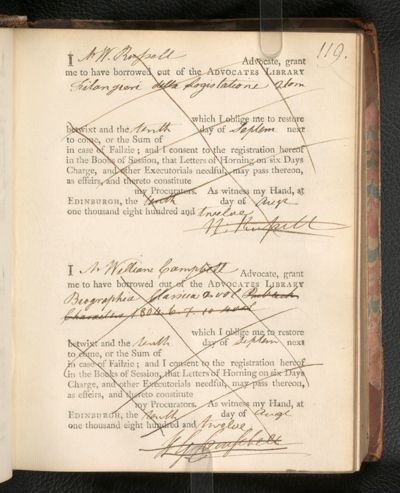 119.
I Mr W. Russell Advocate, grant
me to have borrowed out of the ADVOCATES LIBRARY
Filangieri della Legislatione 2 tom
which I oblige me to restore
betwixt and the tenth day of Septem next
to come, or the Sum of
in case of Failzie; and I consent to the registration hereof
in the Books of Session, that Letters of Horning on six Days
Charge, and other Executorials needful, may pass thereon,
as effeirs, and thereto constitute
my Procurators. As witness my Hand, at
EDINBURGH, the tenth day of Augt
one thousand eight hundred and twelve
W. Russell
I Mr William Campbell Advocate, grant
me to have borrowed out of the ADVOCATES LIBRARY
Biographia Classica 2 vol Publick
Characters 1804. 6. 7. 10 4 vol
which I oblige me to restore
betwixt and the tenth day of Septem next
to come, or the Sum of
in case of Failzie; and I consent to the registration hereof
in the Books of Session, that Letters of Horning on six Days
Charge, and other Executorials needful, may pass thereon,
as effeirs, and thereto constitute
my Procurators. As witness my Hand, at
EDINBURGH, the tenth day of Augt
one thousand eight hundred and twelve
Campbell